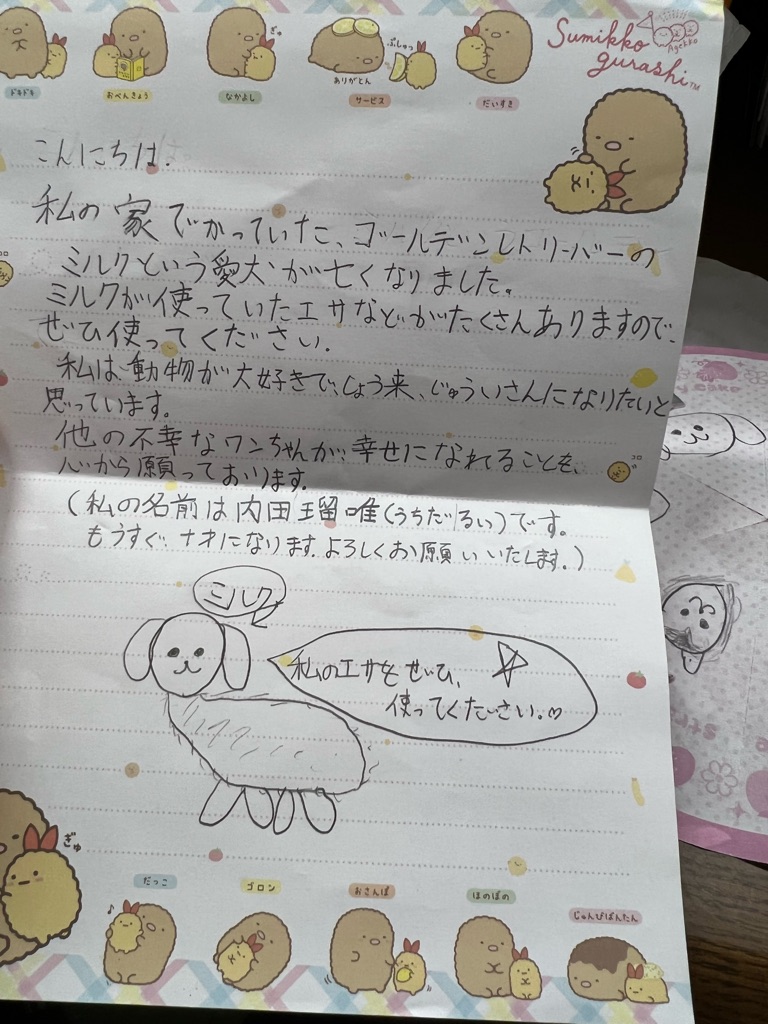 ぎゅ
ぷしゅっ
ありがとん
ドキドキ
おべんきょう
なかよし
サービス
だいすき
Sumikko
gurashi™
Agekko
こんにちは.
私の家でかっていた、ゴールデンレトリーバーの
ミルクという愛犬が亡くなりました。
ミルクが使っていたエサなどがたくさんありますので、
ぜひ使ってください.
私は動物が大好きで、しょう来、じゅういさんになりたいと
思っています。
他の不幸なワンちゃんが、幸せになれることを、
心から願っております.
(私の名前は内田瑠唯(うちだるい)です。
もうすぐ、十才になります.よろしくお願いいたします.)
ミルク
私のエサをぜひ、
使ってください.♡
コロ
ぎゅ
だっこ
ゴロン
おさんぽ
ほのぼの
じゅんびばんたん